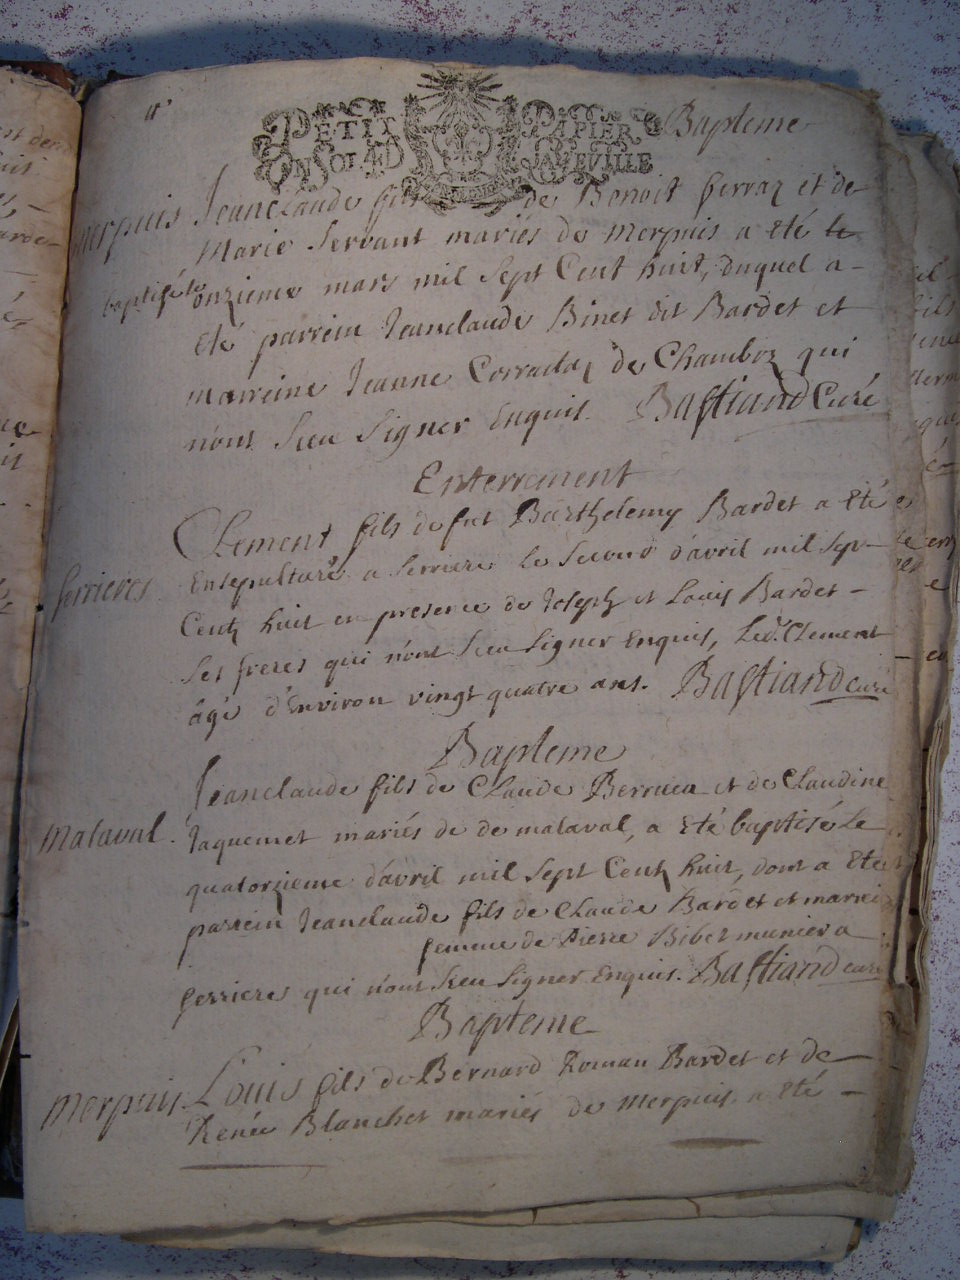 PETIT PAPIER
UN SOL 4 D LA FEUILLE
Bapteme
Merpuis Jeanclaude fils de Benoit ferraz et de
Marie Servant mariés de Merpuis a eté le
baptisé le onzieme mars mil sept Cent huit, duquel a
eté parrein Jeanclaude Binet dit Bardet et
marreine Jeanne de Chamboz qui
n'ont sceu signer Enquis. Bastiand Curé
Enterrement
Clement fils de fut Barthelemy Bardet a eté
ferrieres Ensepulturé a ferriere le second d'avril mil sept
Centz huit en presence de Joseph et Louis Bardet
ses freres qui n'ont sceu signer enquis, Led. Clement
âgé d'Environ vingt quatre ans. Bastiand curé
Bapteme
Jeanclaude fils de Claude Berruca et de Claudine
Malaval. Jaquemet mariés de de malaval, a eté baptisé le
quatorzieme d'avril mil sept Centz huit, dont a eté
parrein Jeanclaude fils de Claude Bardet et marrei
femme de Pierre Bibet munier a
ferrieres qui n'ont sceu signer enquis. Bastiand curé
Bapteme
Merpuis Louis fils de Bernard Roman Bardet et de
Renée Blanchet mariés de Merpuis a eté